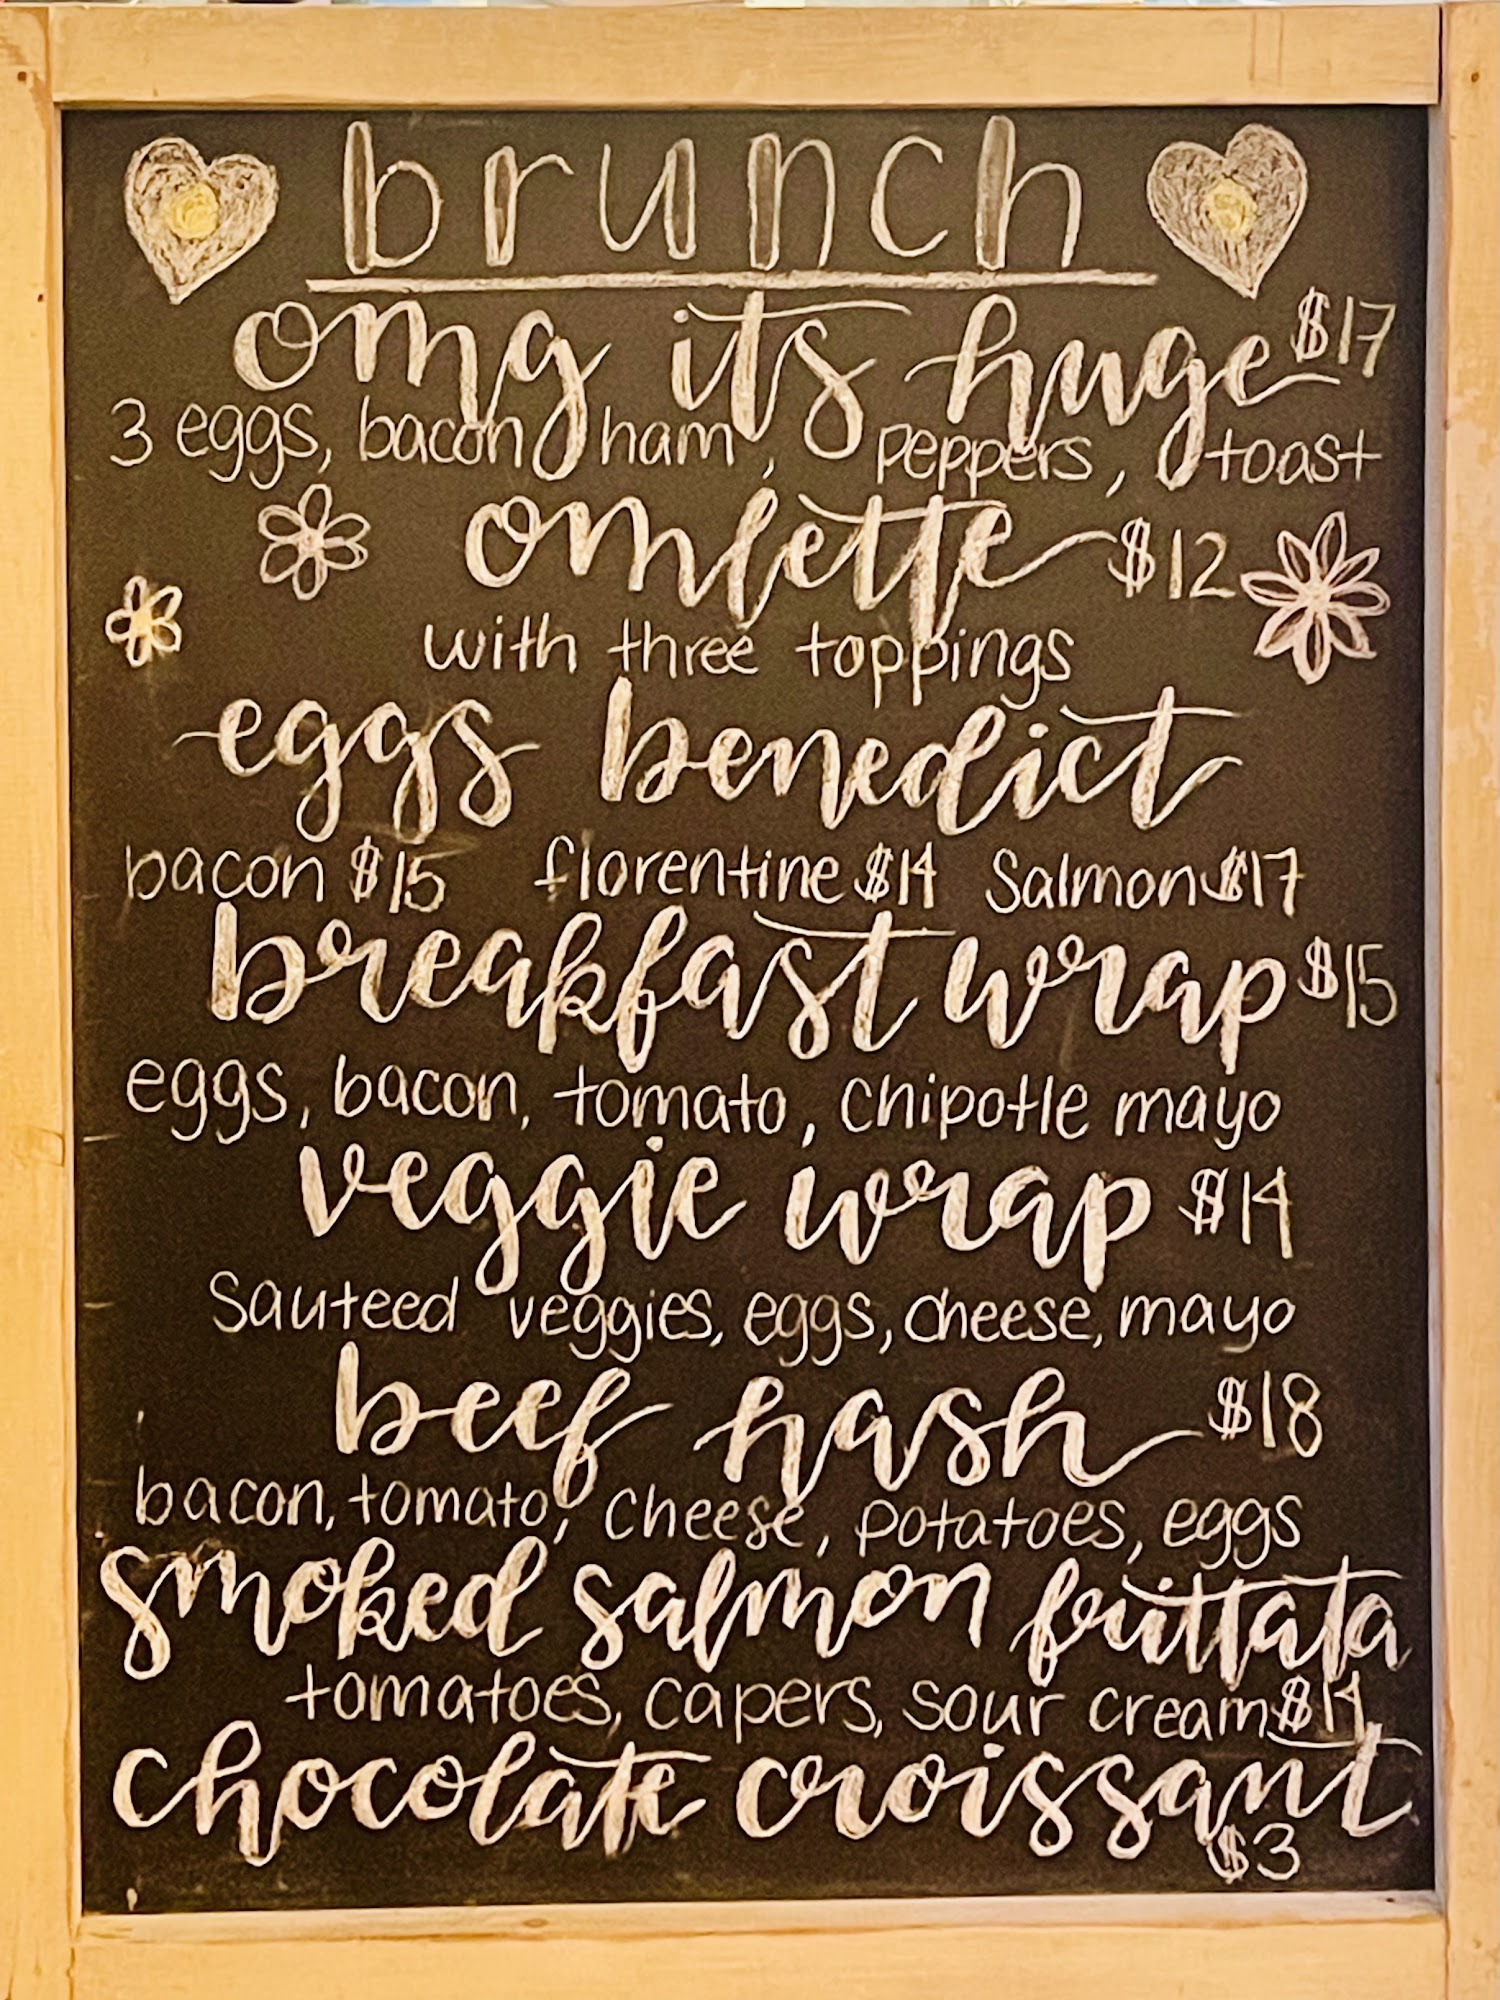 brunch
omg its huge $17
3 eggs, bacon ham, peppers, toast
omlette $12
with three toppings
eggs benedict
bacon $15 florentine $14 Salmon $17
breakfast wrap $15
eggs, bacon, tomato, chipotle mayo
veggie wrap $14
Sauteed veggies, eggs, cheese, mayo
beef hash $18
bacon, tomato, cheese, potatoes, eggs
smoked salmon frittata
tomatoes, capers, sour cream $14
chocolate croissant
$3